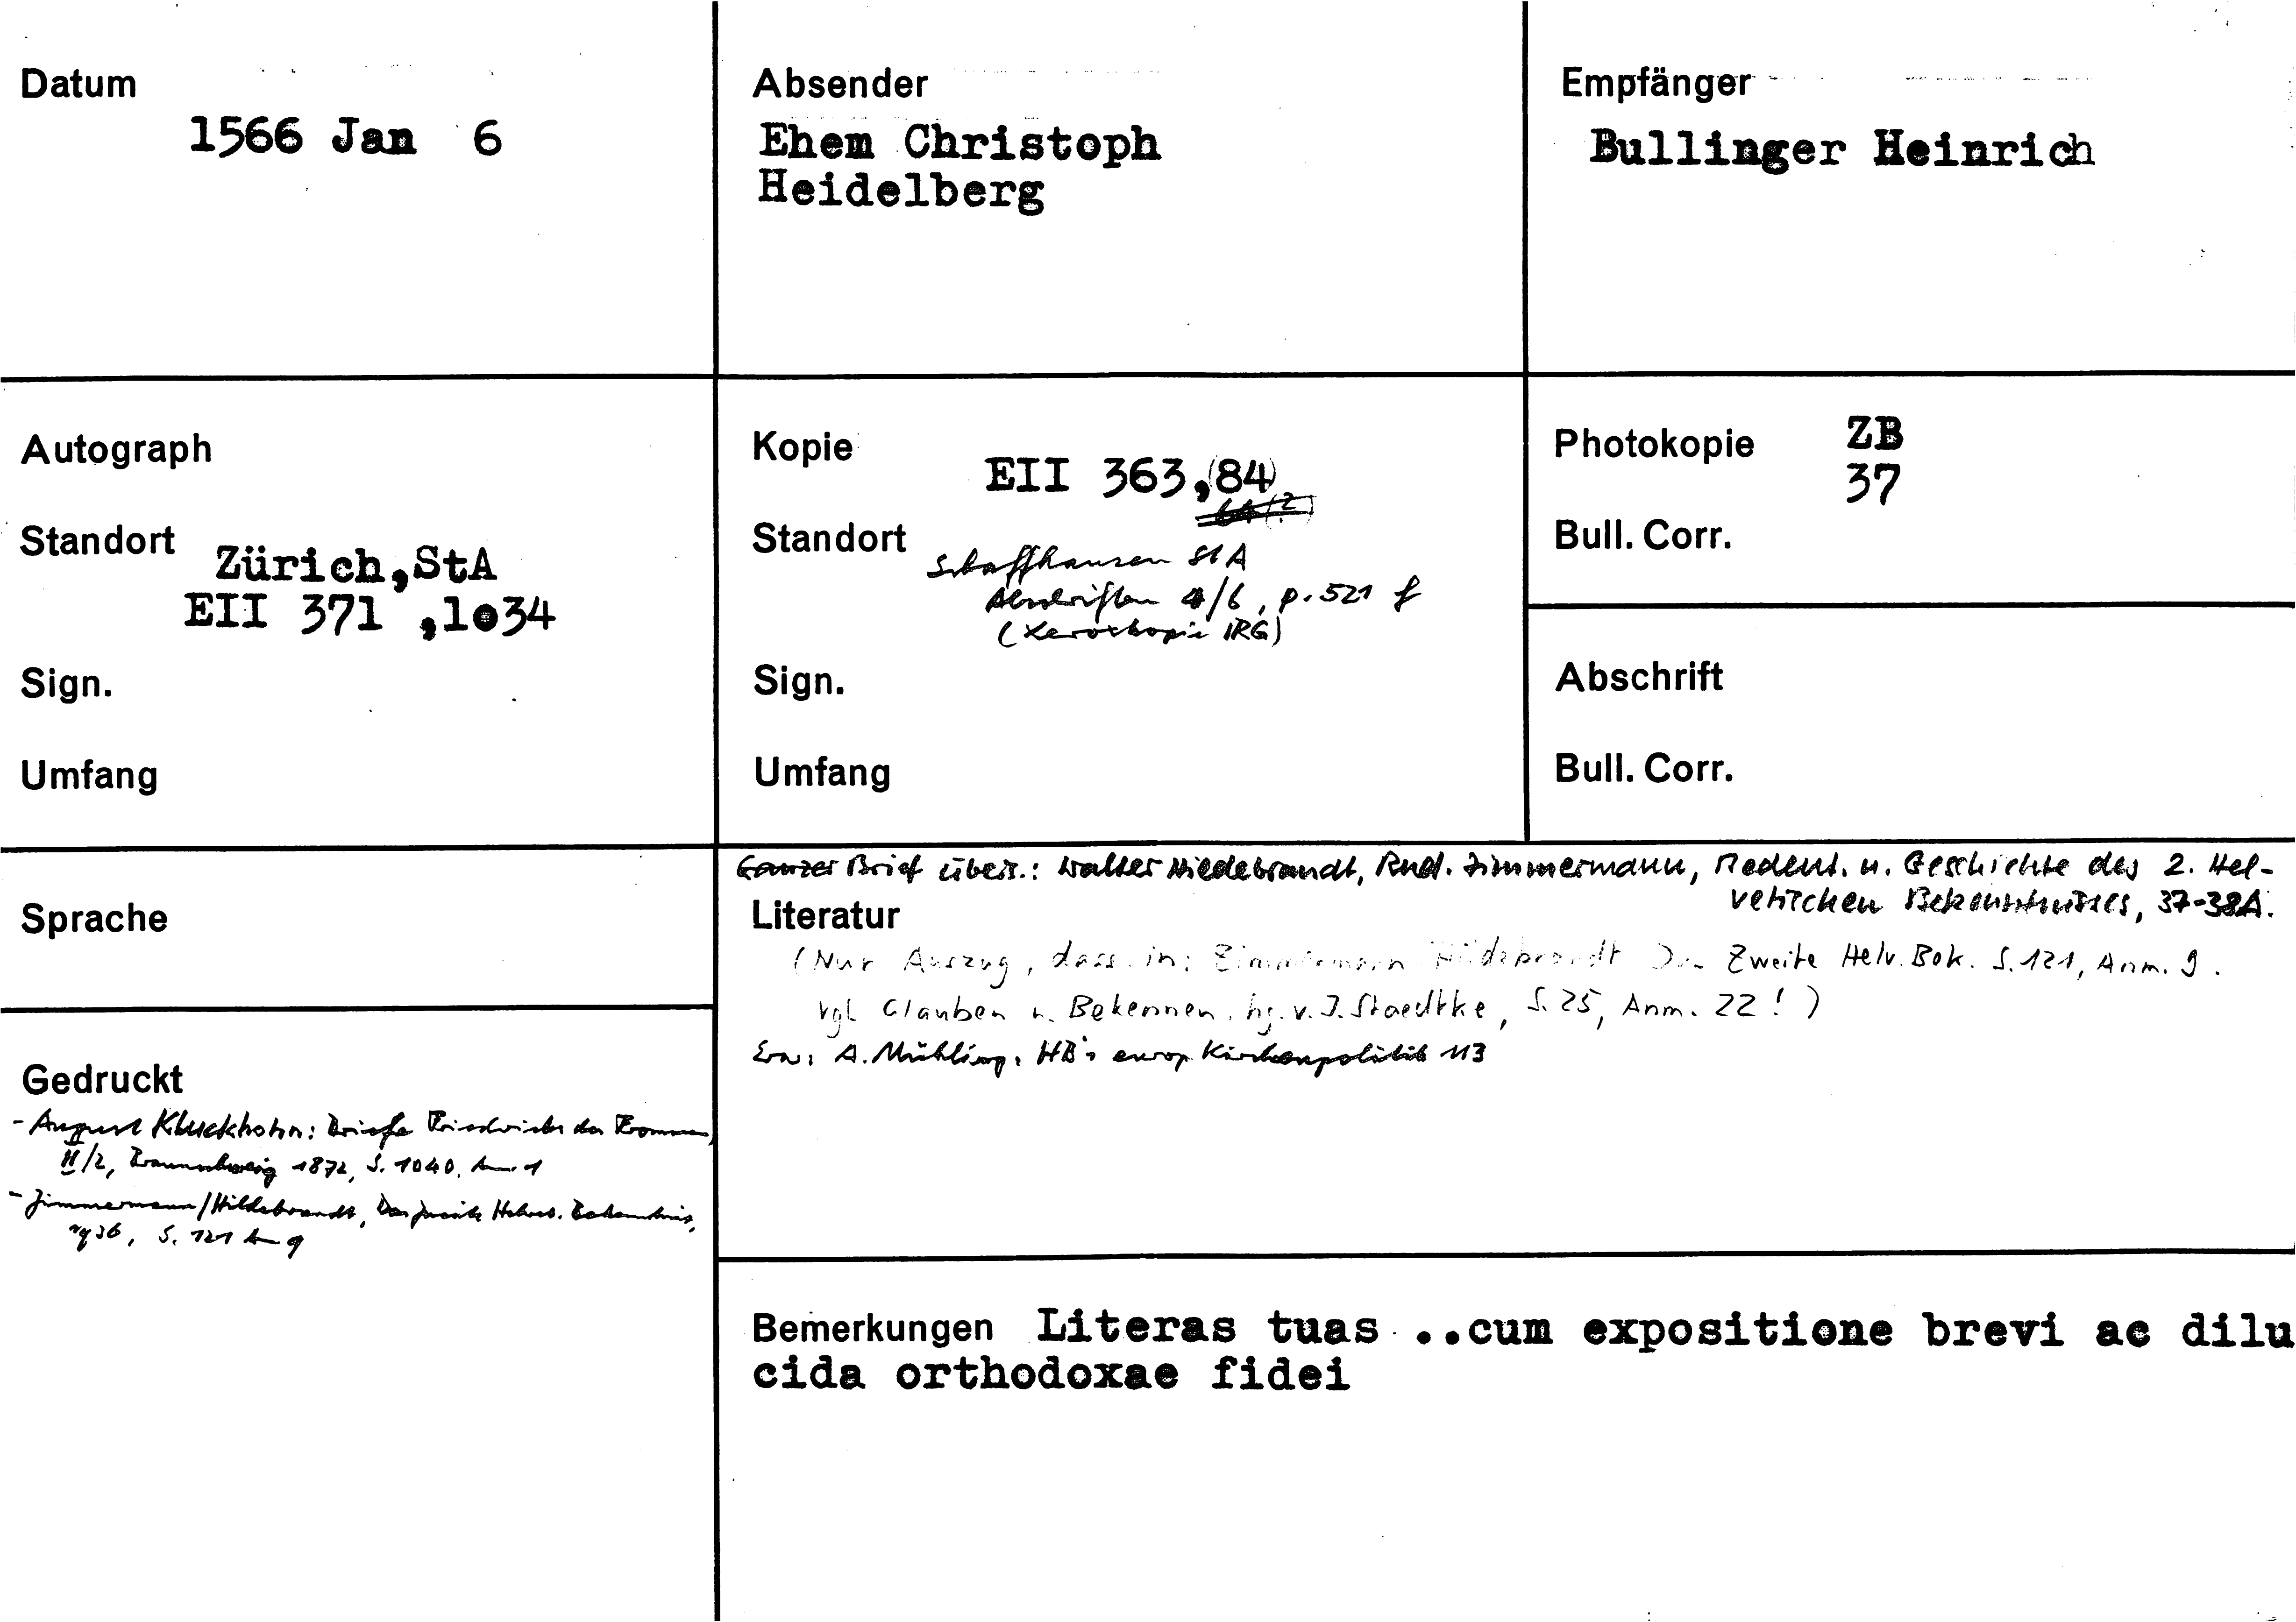 Datum
1566 Jan 6
Absender
Ehem Christoph
Heidelberg
Empfänger
Bullinger Heinrich
Autograph
Standort
Zürich,StA
EII 371 ,1o34
Sign.
Umfang
Kopie
EII 363,(84)
64(?)
Standort
Schaffhausen StA
Abschriften 4/6, p. 521 f
(Xerokopie IRG)
Sign.
Umfang
Photokopie ZB
37
Bull. Corr.
Abschrift
Bull. Corr.
Sprache
Gedruckt
- August Kluckhohn: Briefe Friedrichs des Frommen,
II/2, Braunschweig 1872, S. 1040, Anm. 1
- Zimmermann/Hildebrandt, Das zweite Helvet. Bekenntnis,
1936, S. 121 A 9
Ganzer Brief übers.: Walter Hildebrandt, Rud. Zimmermann, Bedeut. u. Geschichte des 2. Hel-
vetischen Bekenntnisses, 37-38A.
Literatur
(Nur Auszug, dass. in: Zimmermann Hildebrandt Das Zweite Helv. Bek. S. 121, Anm. 9.
Vgl Glauben u. Bekennen, hg. v. J. Staedtke, S. 25, Anm. 22! )
Erw: A. Mühling, HB's europ Kirchenpolitik 113
Bemerkungen Literas tuas ..cum expositione brevi ac dilu
cida orthodoxae fidei